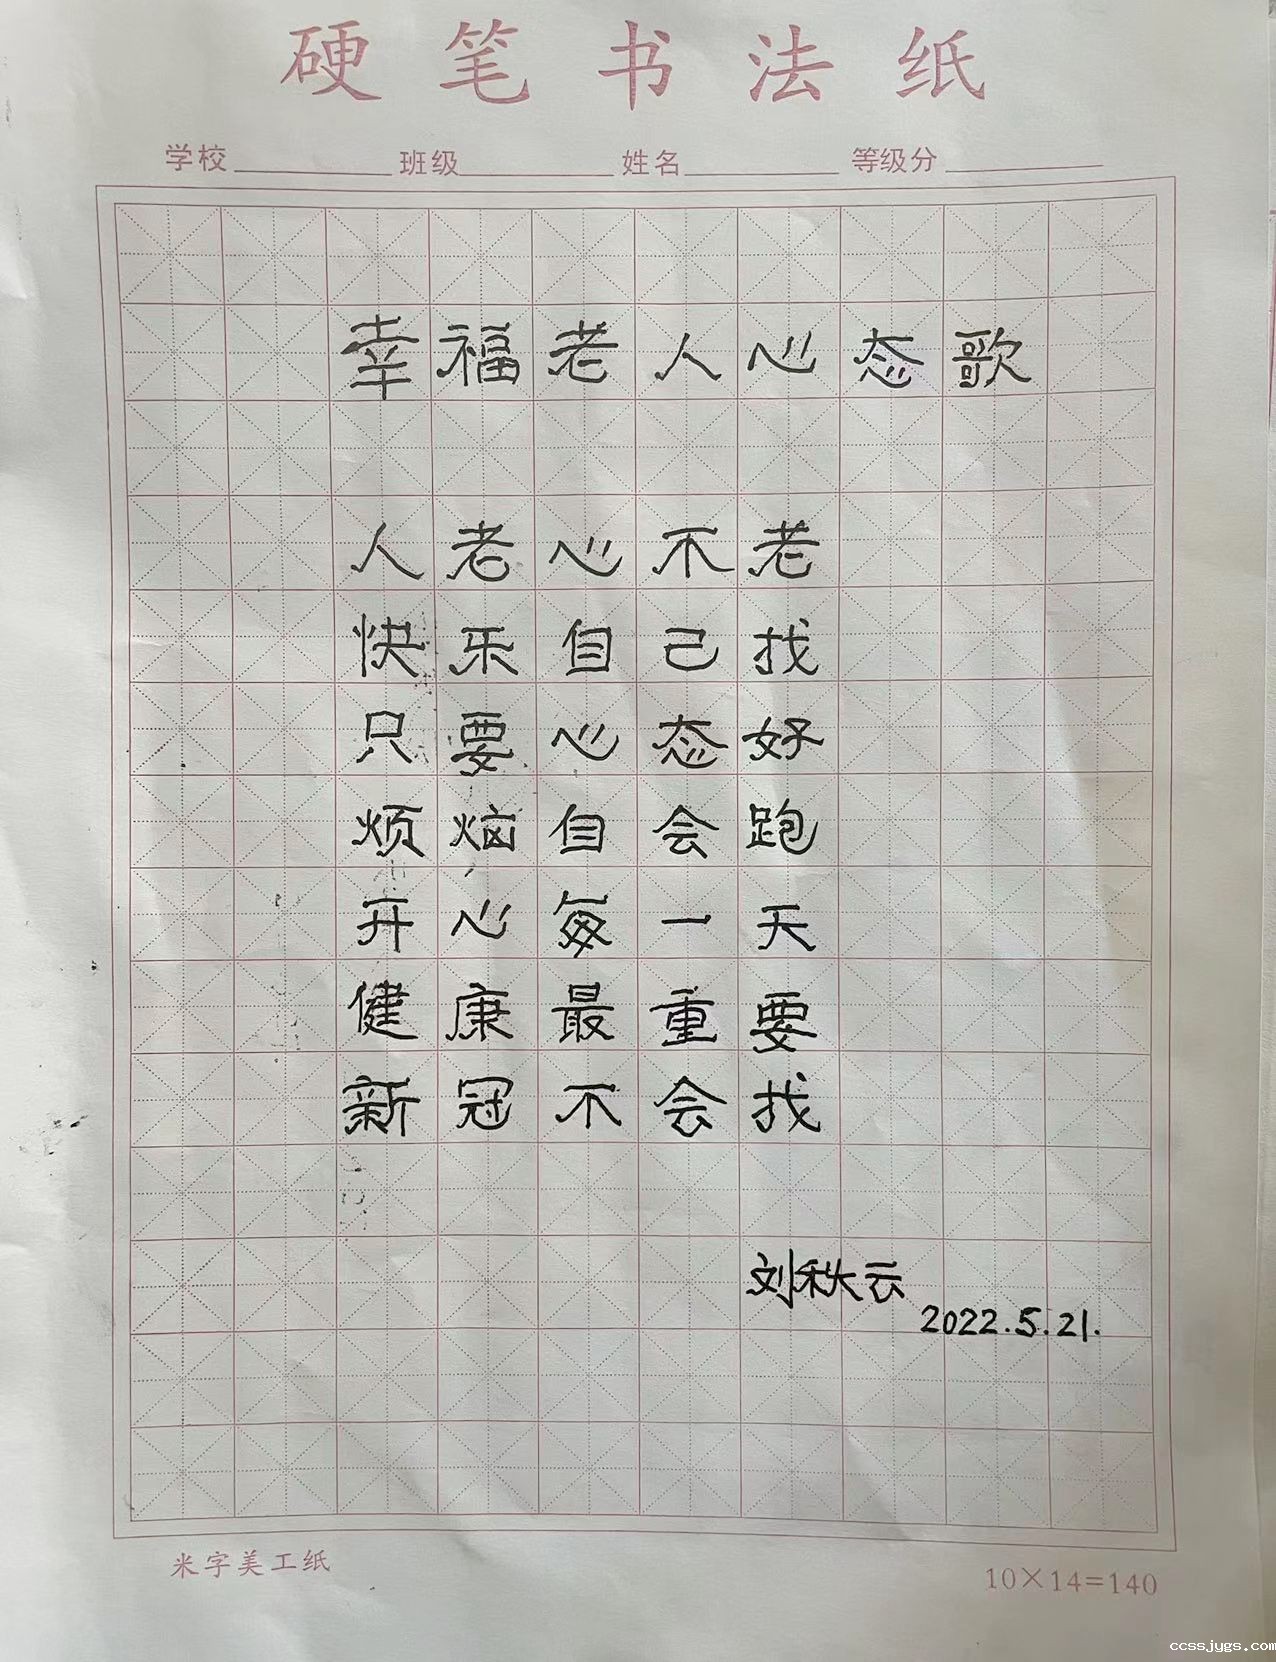 硬笔书法纸
学校 班级 姓名 等级分
幸福老人心态歌
人老心不老
快乐自己找
只要心态好
烦恼自会跑
开心每一天
健康最重要
新冠不会找
刘秋云
2022.5.21.
米字美工纸 10×14=140
ccssjygs.com